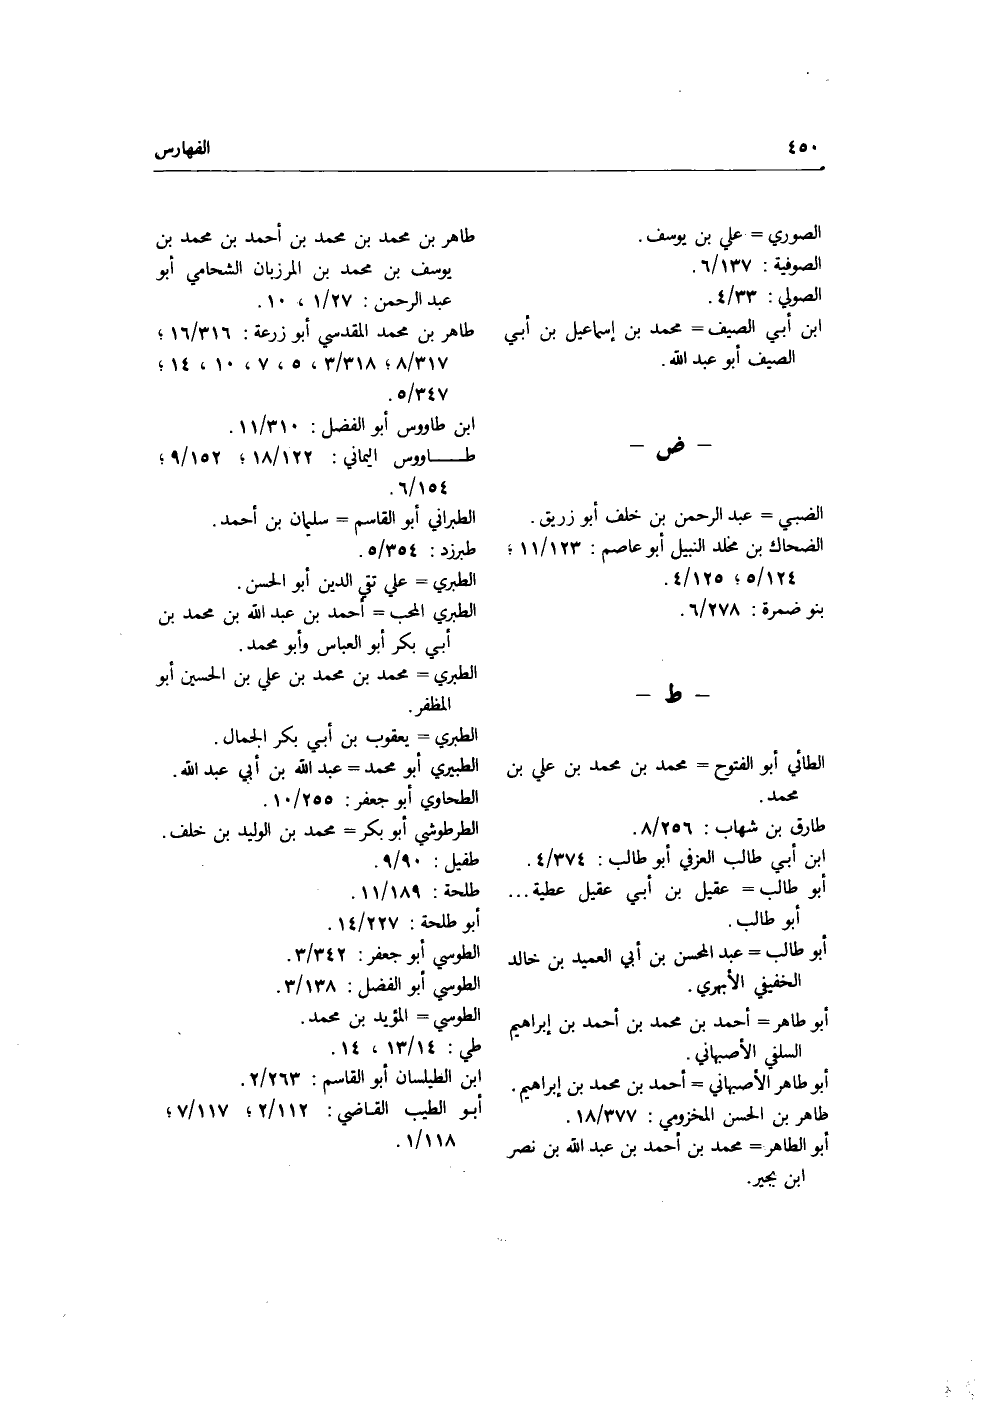 ٤٥٠
الفهارس
الصوري = علي بن يوسف.
الصوفية : ٦/١٣٧.
الصولي : ٤/٣٣.
ابن أبي الصيف = محمد بن إسماعيل بن أبي
الصيف أبو عبد الله.
– ض –
الضبي = عبد الرحمن بن خلف أبو زريق.
الضحاك بن مخلد النبيل أبو عاصم : ١١/١٢٣ ؛
٥/١٢٤ ؛ ٤/١٢٥.
بنو ضمرة : ٦/٢٧٨.
– ط –
الطائي أبو الفتوح = محمد بن محمد بن علي بن
محمد.
طارق بن شهاب : ٨/٢٥٦.
ابن أبي طالب العزفي أبو طالب : ٤/٣٧٤.
أبو طالب = عقيل بن أبي عقيل عطية...
أبو طالب.
أبو طالب = عبد المحسن بن أبي العميد بن خالد
الخفيفي الأبهري.
أبو طاهر = أحمد بن محمد بن أحمد بن إبراهيم
السلفي الأصبهاني.
أبو طاهر الأصبهاني = أحمد بن محمد بن إبراهيم.
طاهر بن الحسن المخزومي : ١٨/٣٧٧.
أبو الطاهر = محمد بن أحمد بن عبد الله بن نصر
ابن بجير.
طاهر بن محمد بن محمد بن أحمد بن محمد بن
يوسف بن محمد بن المرزبان الشحامي أبو
عبد الرحمن : ١/٢٧ ، ١٠.
طاهر بن محمد المقدسي أبو زرعة : ١٦/٣١٦ ؛
٨/٣١٧ ؛ ٣/٣١٨ ، ٥ ، ٧ ، ١٠ ، ١٤ ؛
٥/٣٤٧.
ابن طاووس أبو الفضل : ١١/٣١٠.
طـــاووس اليماني : ١٨/١٢٢ ؛ ٩/١٥٢ ؛
٦/١٥٤.
الطبراني أبو القاسم = سليمان بن أحمد.
طبرزد : ٥/٣٥٤.
الطبري = علي تقي الدين أبو الحسن.
الطبري المحب = أحمد بن عبد الله بن محمد بن
أبي بكر أبو العباس وأبو محمد.
الطبري = محمد بن محمد بن علي بن الحسين أبو
المظفر.
الطبري = يعقوب بن أبي بكر الجمال.
الطبيري أبو محمد = عبد الله بن أبي عبد الله.
الطحاوي أبو جعفر : ١٠/٢٥٥.
الطرطوشي أبو بكر = محمد بن الوليد بن خلف.
طفيل : ٩/٩٠.
طلحة : ١١/١٨٩.
أبو طلحة : ١٤/٢٢٧.
الطوسي أبو جعفر : ٣/٣٤٢.
الطوسي أبو الفضل : ٣/١٣٨.
الطوسي = المؤيد بن محمد.
طي : ١٣/١٤ ، ١٤.
ابن الطيلسان أبو القاسم : ٢/٢٦٣.
أبو الطيب القاضي : ٢/١١٢ ؛ ٧/١١٧ ؛
١/١١٨.